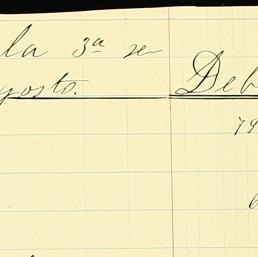 la 3ª se
gosto. Deb
79